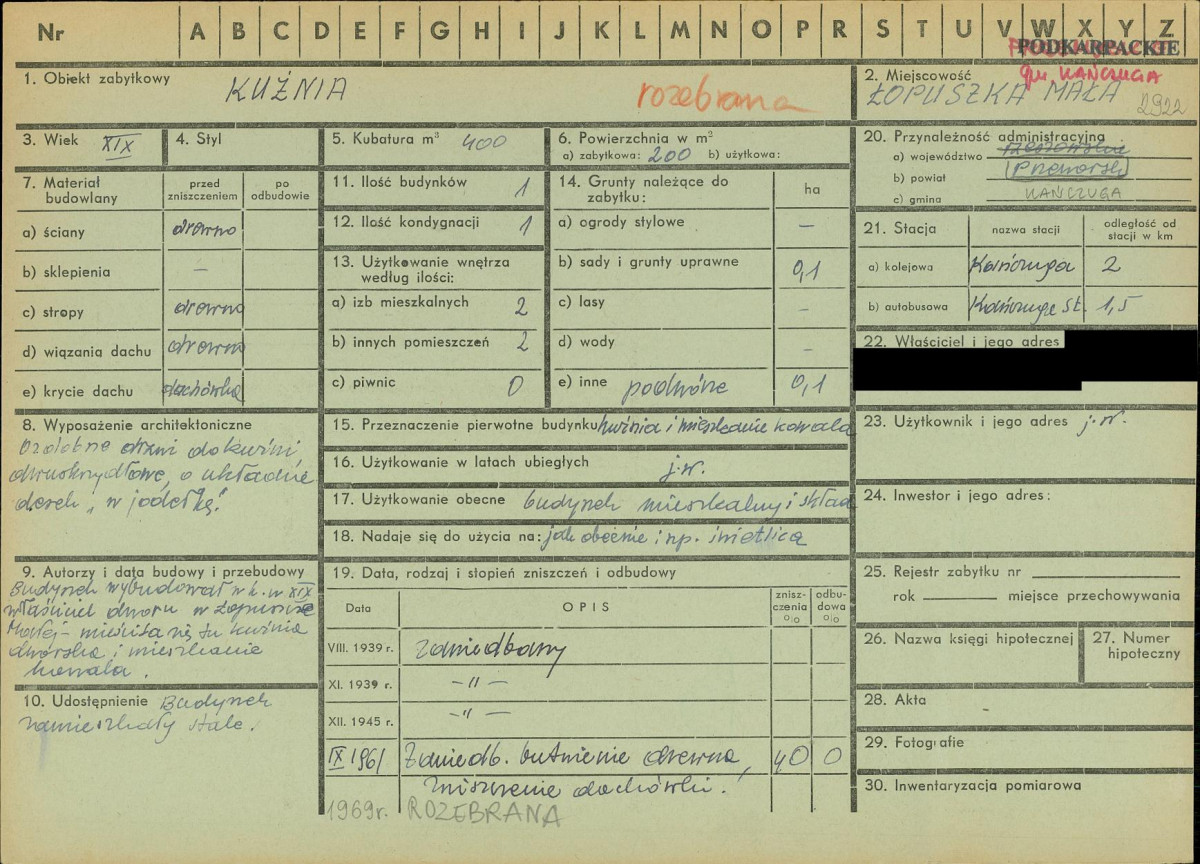 Nr A B C D E F G H I J K L M N O P R S T U V W X Y Z
PODKARPACKIE
1. Obiekt zabytkowy KUŹNIA rozebrana
2. Miejscowość gm. KAŃCZUGA
ŁOPUSZKA MAŁA 2922
3. Wiek XIX
4. Styl
5. Kubatura m³ 400
6. Powierzchnia w m²
a) zabytkowa: 200 b) użytkowa:
7. Materiał budowlany
przed zniszczeniem
po odbudowie
a) ściany drewno
b) sklepienia –
c) stropy drewno
d) wiązania dachu drewno
e) krycie dachu dachówka
8. Wyposażenie architektoniczne
Ozdobne drzwi do kuźni,
dwuskrzydłowe, o układzie
desek „w jodełkę".
9. Autorzy i data budowy i przebudowy
Budynek wybudował w k. w XIX
właściciel dworu w Łopuszce
Małej – mieściła się tu kuźnia
dworska i mieszkanie
kowala.
10. Udostępnienie Budynek
zamieszkały stale.
11. Ilość budynków 1
12. Ilość kondygnacji 1
13. Użytkowanie wnętrza według ilości:
a) izb mieszkalnych 2
b) innych pomieszczeń 2
c) piwnic 0
14. Grunty należące do zabytku:
ha
a) ogrody stylowe –
b) sady i grunty uprawne 0,1
c) lasy –
d) wody –
e) inne podwórze 0,1
15. Przeznaczenie pierwotne budynku kuźnia i mieszkanie kowala
16. Użytkowanie w latach ubiegłych j.w.
17. Użytkowanie obecne budynek mieszkalny i skład
18. Nadaje się do użycia na: jak obecnie i np. świetlica
19. Data, rodzaj i stopień zniszczeń i odbudowy
Data OPIS zniszczenia % odbudowa %
VIII. 1939 r. zaniedbany
XI. 1939 r. – " –
XII. 1945 r. – " –
IX 1961 Zaniedb. butwienie drewna, 40 0
zniszczenie dachówki.
1969r. ROZEBRANA
20. Przynależność administracyjna
a) województwo rzeszowskie
b) powiat Przeworsk
c) gmina KAŃCZUGA
21. Stacja nazwa stacji odległość od stacji w km
a) kolejowa Kańczuga 2
b) autobusowa Kańczuga St. 1,5
22. Właściciel i jego adres
23. Użytkownik i jego adres j.w.
24. Inwestor i jego adres:
25. Rejestr zabytku nr
rok miejsce przechowywania
26. Nazwa księgi hipotecznej
27. Numer hipoteczny
28. Akta
29. Fotografie
30. Inwentaryzacja pomiarowa